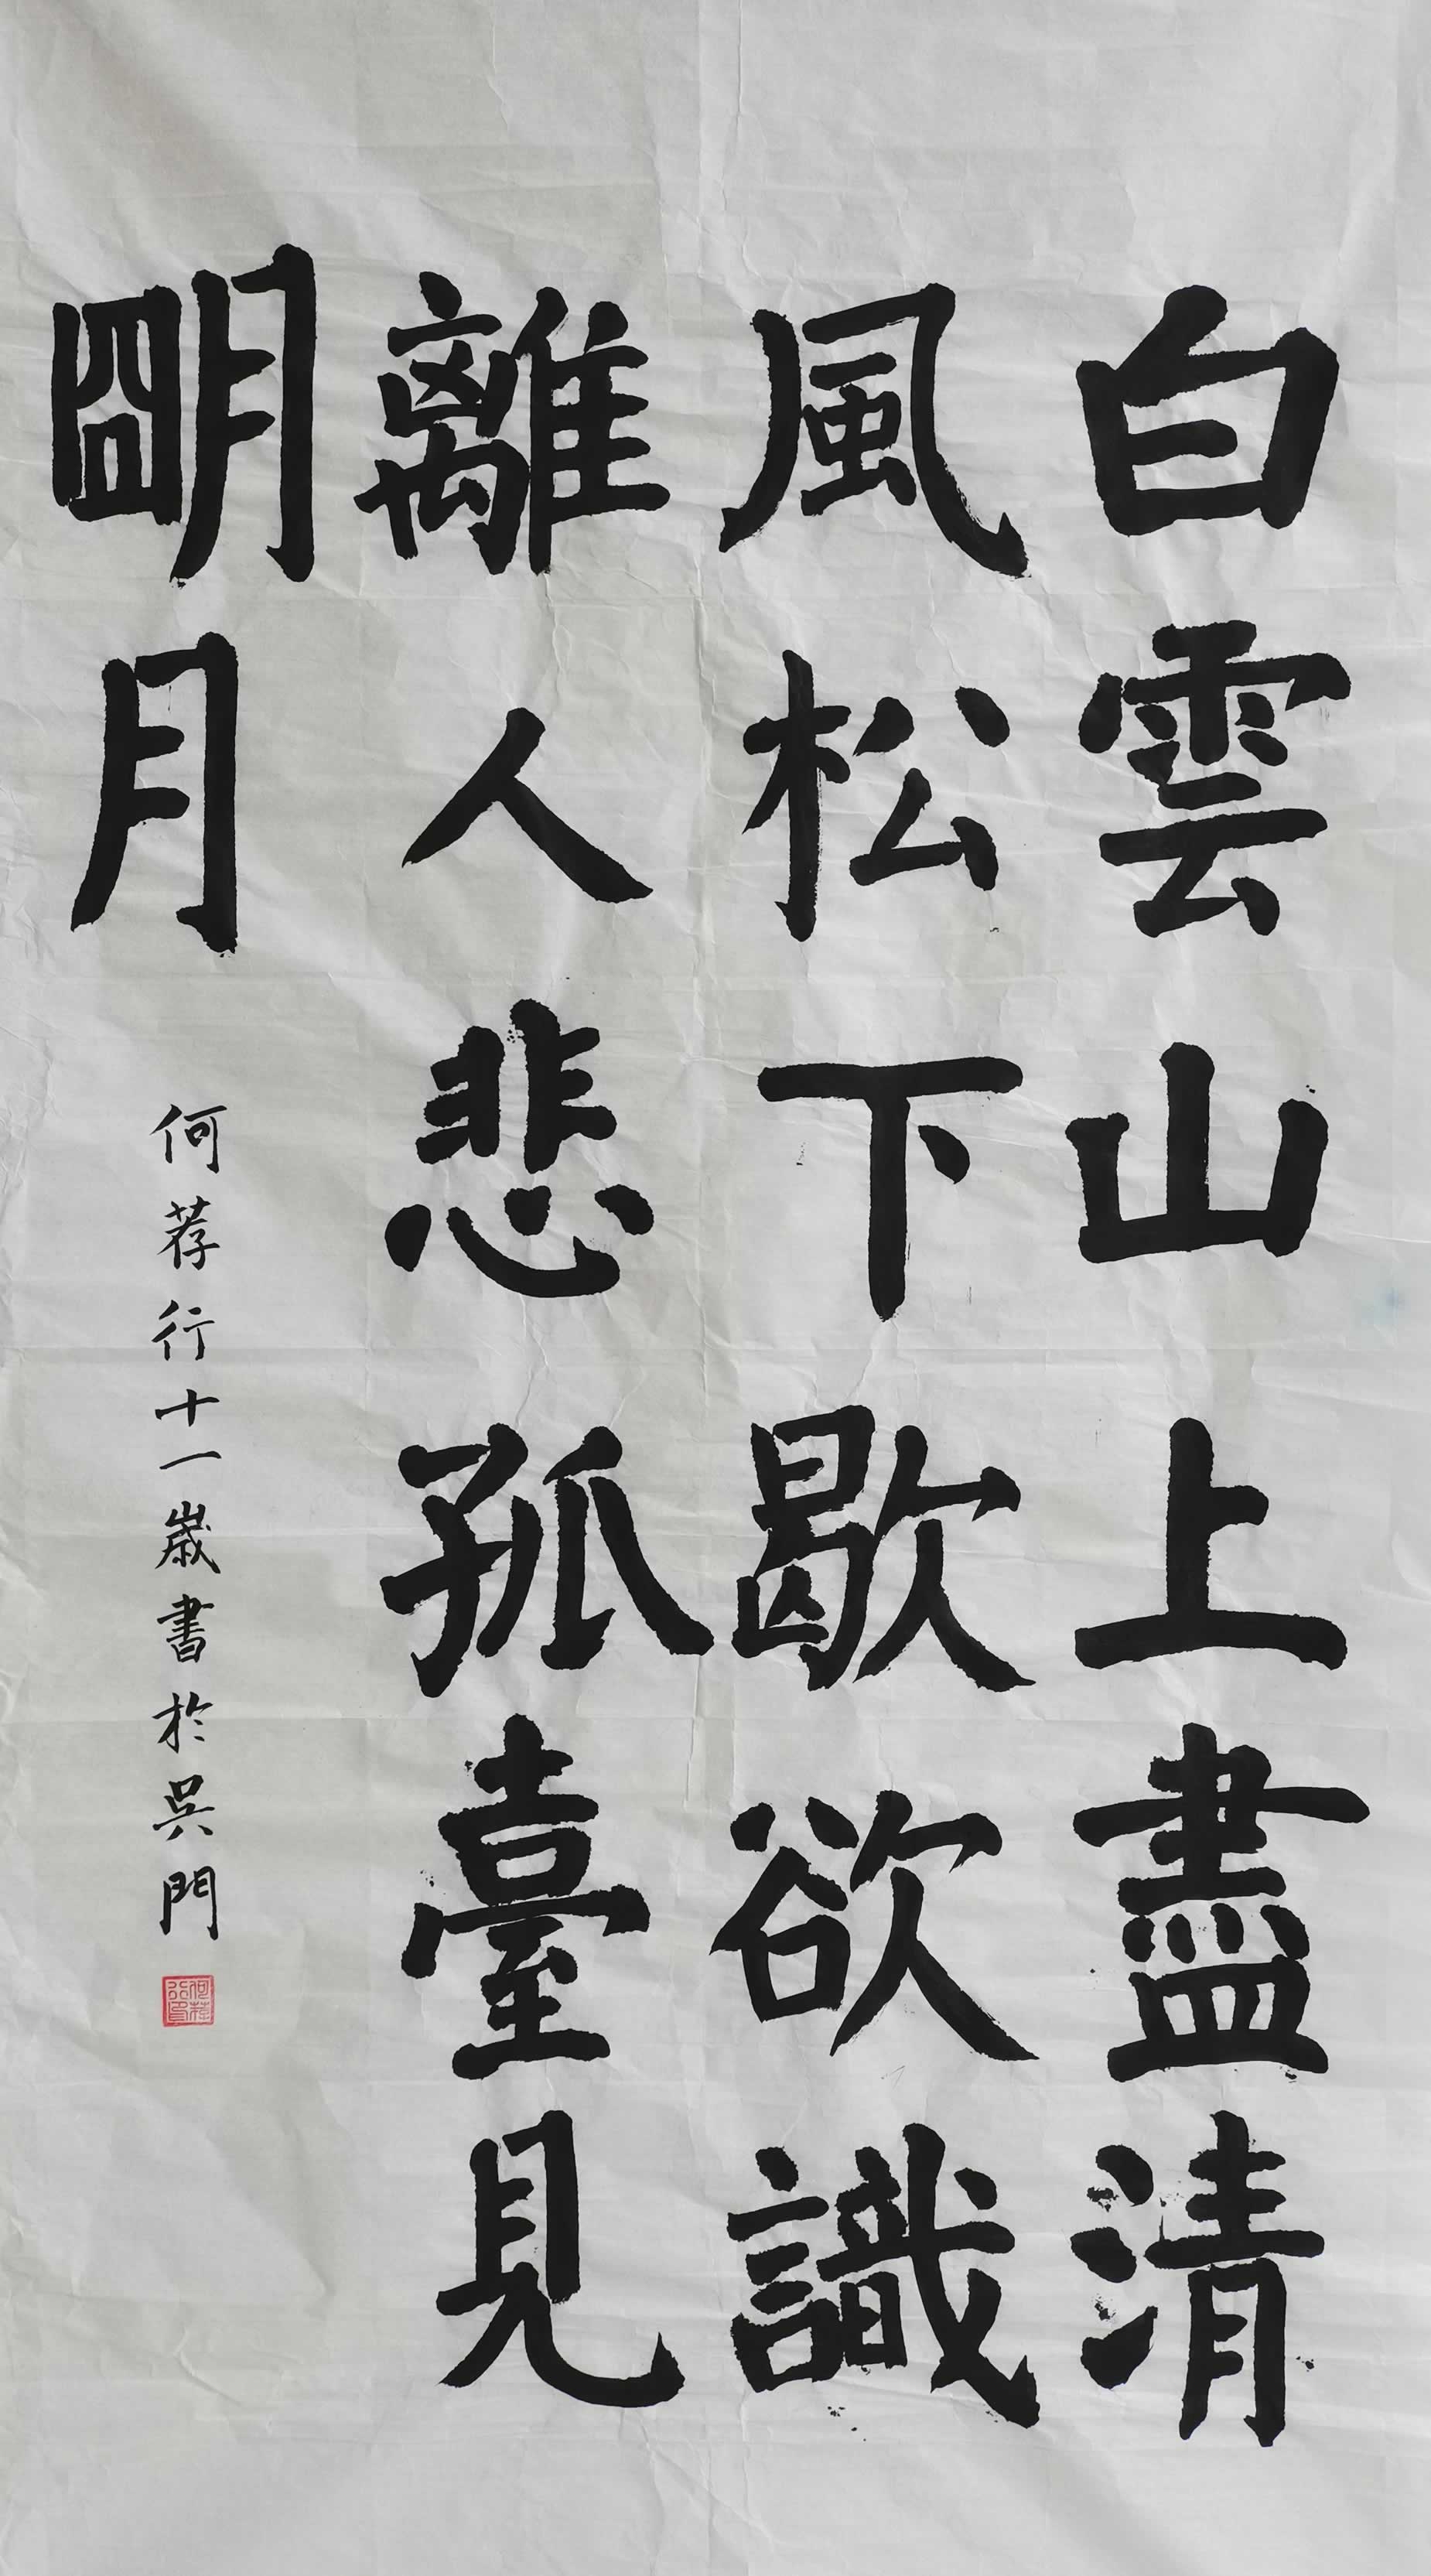 白雲山上盡清
風松下歇欲識
離人悲孤臺見
朙月
何荐行十一歳書於吳門